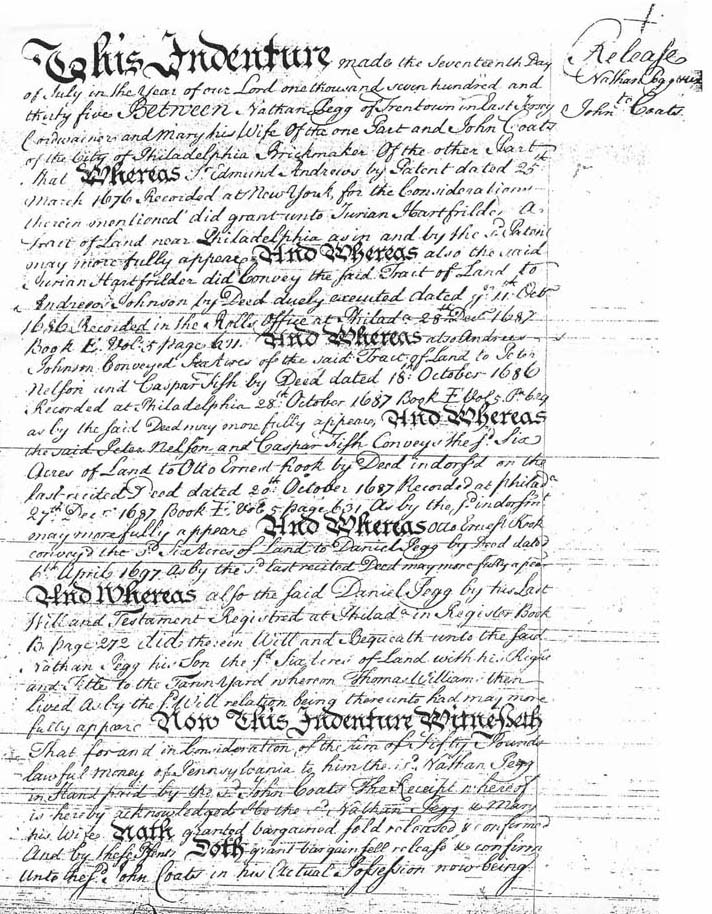 Release
Nathan Pegg
to
John Coats
This Indenture made the Seventeenth Day
of July in the Year of our Lord one thousand seven hundred and
thirty five Between Nathan Pegg of Trentown in Jersey
Cordwainer and Mary his Wife Of the one Part and John Coats
of the City of Philadelphia Brickmaker Of the other Part
that Whereas Sr. Edmund Andrews by Patent dated 25th
March 1676 Recorded at New York, for the Considerations
therein mentioned did grant unto Jurian Hartfrilder A
Tract of Land near Philadelphia as in and by the sd. Patent
may more fully appear And Whereas also the said
Jurian Hartfrilder did Convey the said Tract of Land to
Andrew Johnson by Deed duely executed dated ye. 11th Octr
1686 Recorded in the Rolls Office at Philada. 28th Decr 1687
Book E. Vol: 5 page And Whereas also Andrew
Johnson Conveyed Six Acres of the said Tract of Land to Peter
Nelson and Caspar Fish by Deed dated 18th October 1686
Recorded at Philadelphia 28th October 1687 Book E Vol 5 Pa 629
as by the said Deed may more fully appear, And Whereas
the said Peter Nelson and Caspar Fish Conveys the sd. Six
Acres of Land to Otto Ernest Kook by Deed indors'd on the
last recited Deed dated 20th October 1687 Recorded at philada
27th Decr 1687 Book E. Vol: 5 page 631 As by the sd. indorsmt
may more fully appear And Whereas Otto Ernest Kook
convey'd the sd. Six Acres of Land to Daniel Pegg by Deed dated
6th April 1697 As by the sd. last recited Deed may more fully apear
And Whereas also the said Daniel Pegg by his Last
Will and Testament Registred at Philada. in Register Book
B. page 272 did therein Will and Bequeath unto the said
Nathan Pegg his Son the sd. Six Acres of Land with his Right
and Title to the Tann Yard whereon Thomas William then
lived As by the sd. Will relation being thereunto had may more
fully appear Now This Indenture Witnesseth
That for and in Consideration of the sum of Fifty Pounds
lawful money of Pennsylvania to him the sd. Nathan Pegg
in Hand paid by the sd. John Coats The Receipt whereof
is hereby acknowledged He the sd. Nathan Pegg & Mary
his Wife Hath granted bargained sold released & confirmed
And by these Psents Doth grant bargain sell release & confirm
unto the sd. John Coats in his Actual Possession now being